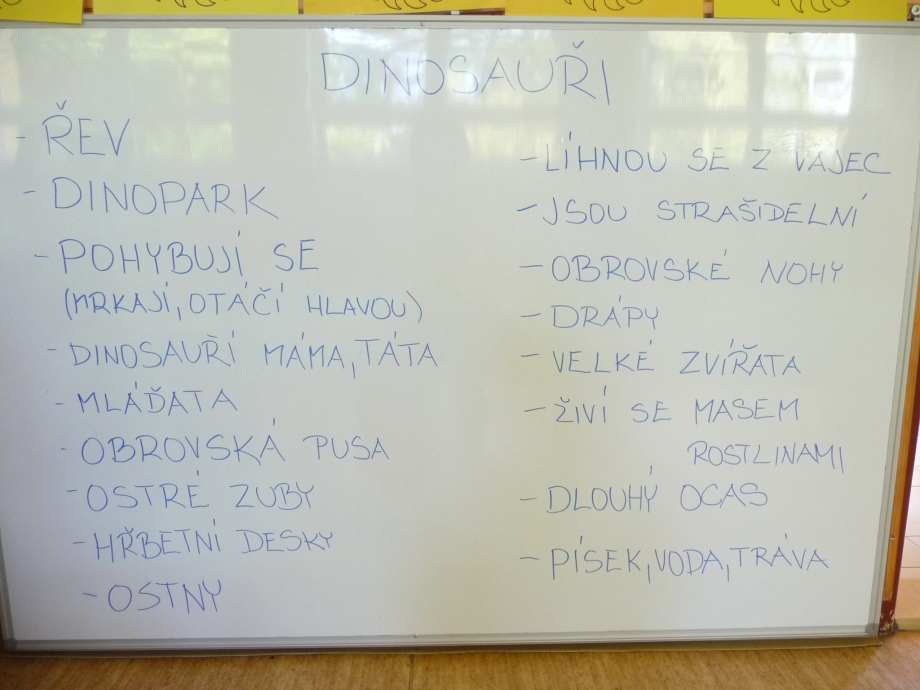 DINOSAUŘI
- ŘEV
- DINOPARK
- POHYBUJÍ SE
(MRKAJÍ, OTÁČÍ HLAVOU)
- DINOSAUŘÍ MÁMA, TÁTA
- MLÁĎATA
- OBROVSKÁ PUSA
- OSTRÉ ZUBY
- HŘBETNÍ DESKY
- OSTNY
- LÍHNOU SE Z VAJEC
- JSOU STRAŠIDELNÍ
- OBROVSKÉ NOHY
- DRÁPY
- VELKÉ ZVÍŘATA
- ŽIVÍ SE MASEM
ROSTLINAMI
- DLOUHÝ OCAS
- PÍSEK, VODA, TRÁVA